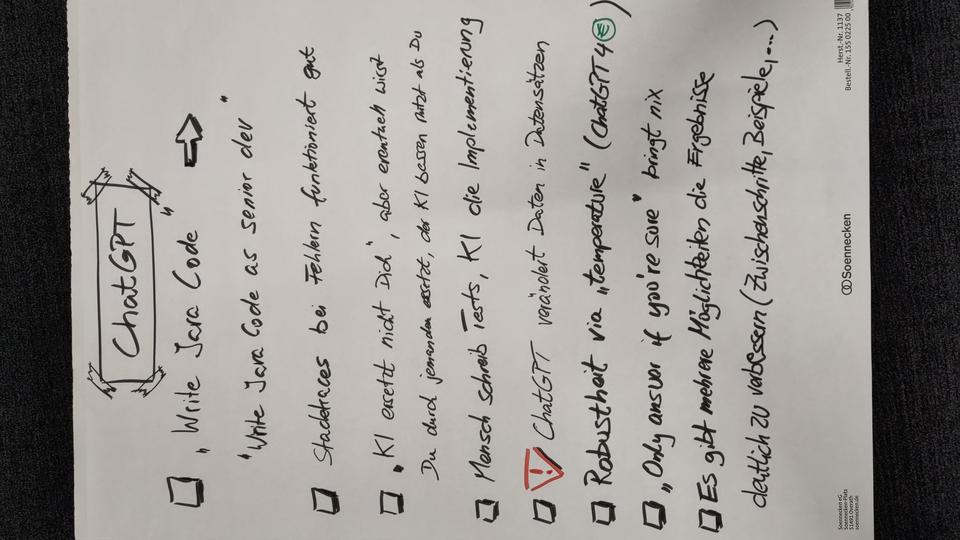 ChatGPT
„Write Java Code" ⇒
"Write Java Code as senior dev"
Stacktraces bei Fehlern funktioniert gut
„KI ersetzt nicht Dich", aber eventuell wirst
Du durch jemanden ersetzt, der KI besser nutzt als Du
Mensch schreib Tests, KI die Implementierung
! ChatGPT verändert Daten in Datensätzen
Robustheit via „temperature" (ChatGPT 4 €)
„Only answer if you're sure" bringt nix
Es gibt mehrere Möglichkeiten die Ergebnisse
deutlich zu verbessern (Zwischenschritte, Beispiele, ...)
Soennecken eG
Soennecken-Platz
51491 Overath
soennecken.de
Soennecken
Herst.-Nr. 1137
Bestell.-Nr. 155 0225 00